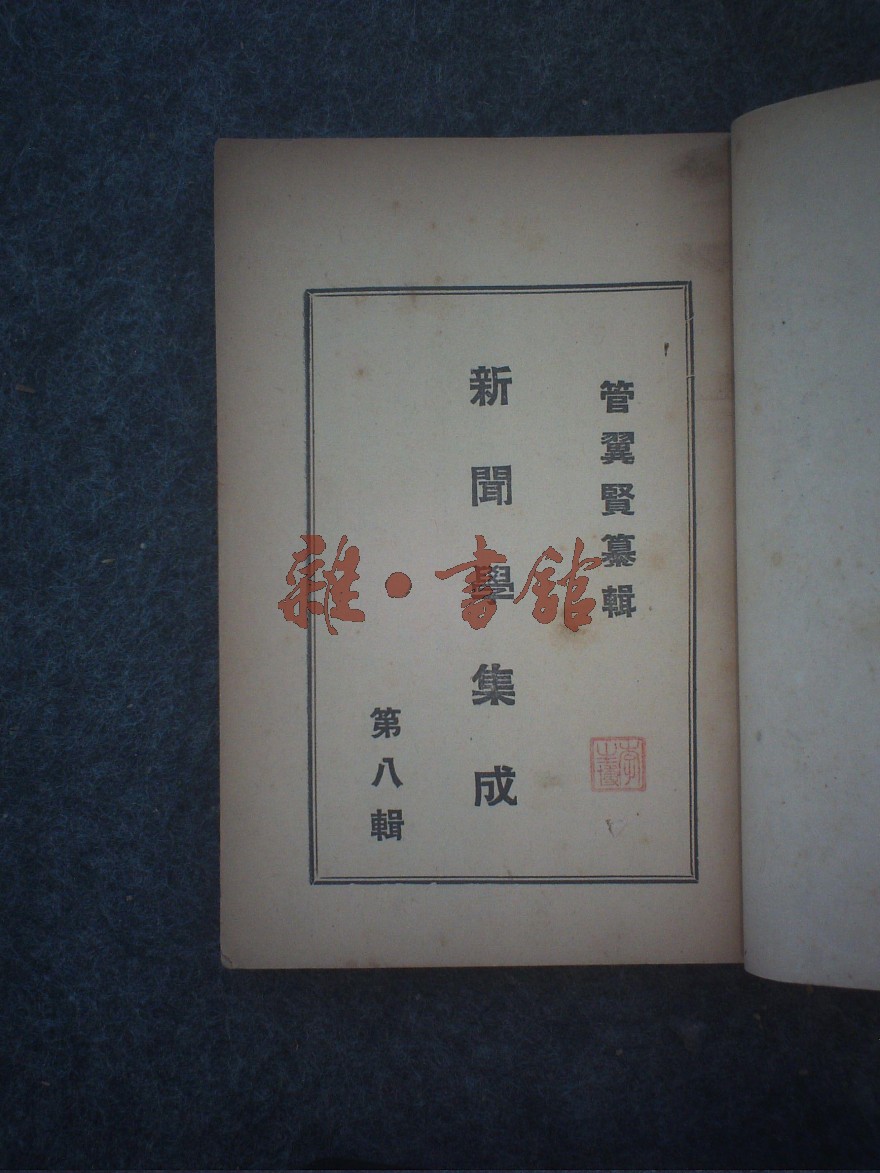 管翼賢纂輯
新聞學集成
第八輯
雜·書館